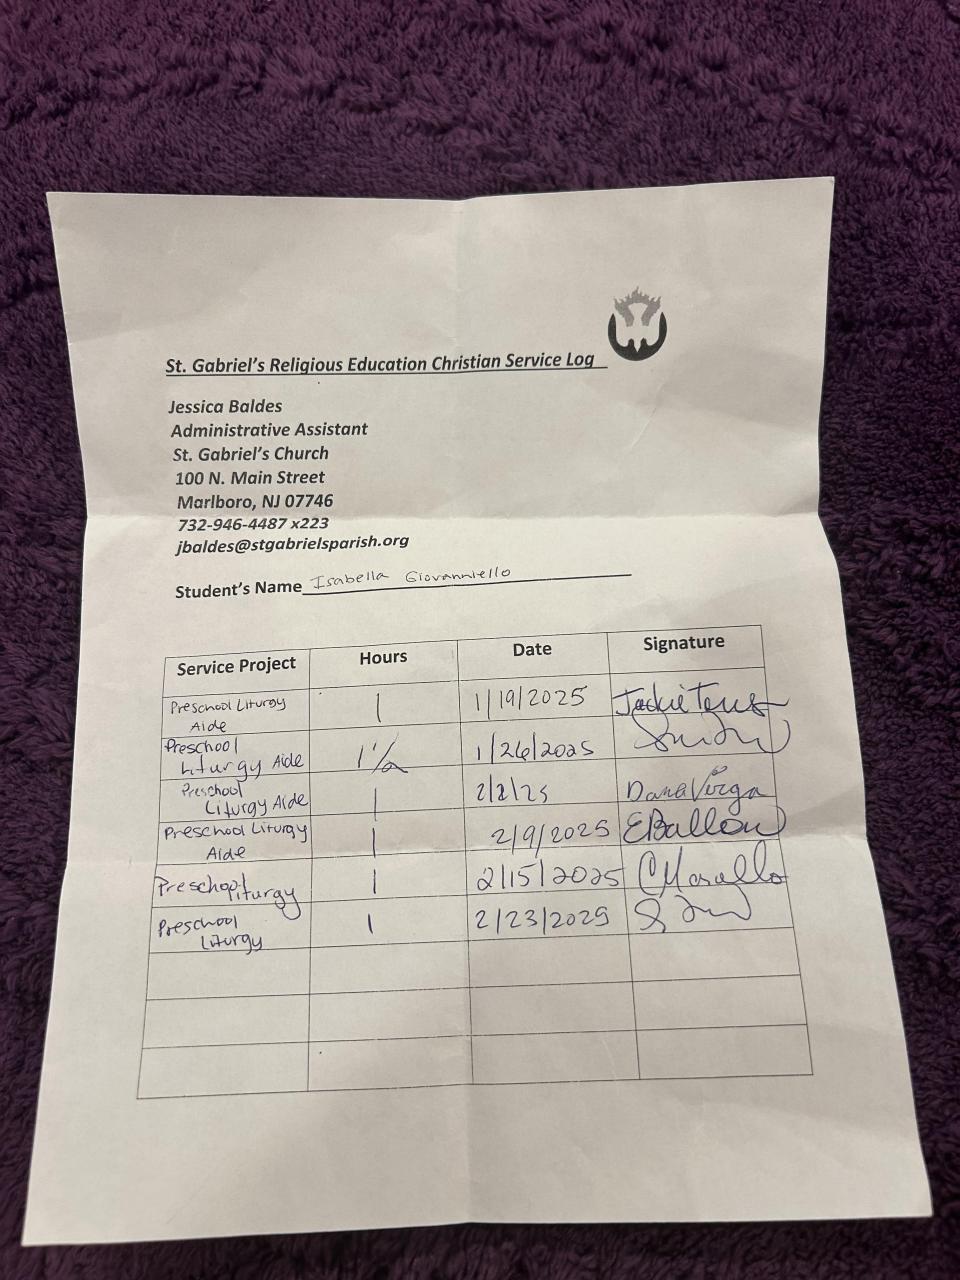 St. Gabriel's Religious Education Christian Service Log
Jessica Baldes
Administrative Assistant
St. Gabriel's Church
100 N. Main Street
Marlboro, NJ 07746
732-946-4487 x223
jbaldes@stgabrielsparish.org
Student's Name Isabella Giovanniello
Service Project Hours Date Signature
Preschool Liturgy Aide 1 1/19/2025 Jackie
Preschool Liturgy Aide 1 1/2 1/26/2025
Preschool Liturgy Aide 1 2/2/25 Dana Virga
Preschool Liturgy Aide 1 2/9/2025 EBallou
Preschool Liturgy 1 2/15/2025 CMarallo
Preschool Liturgy 1 2/23/2025